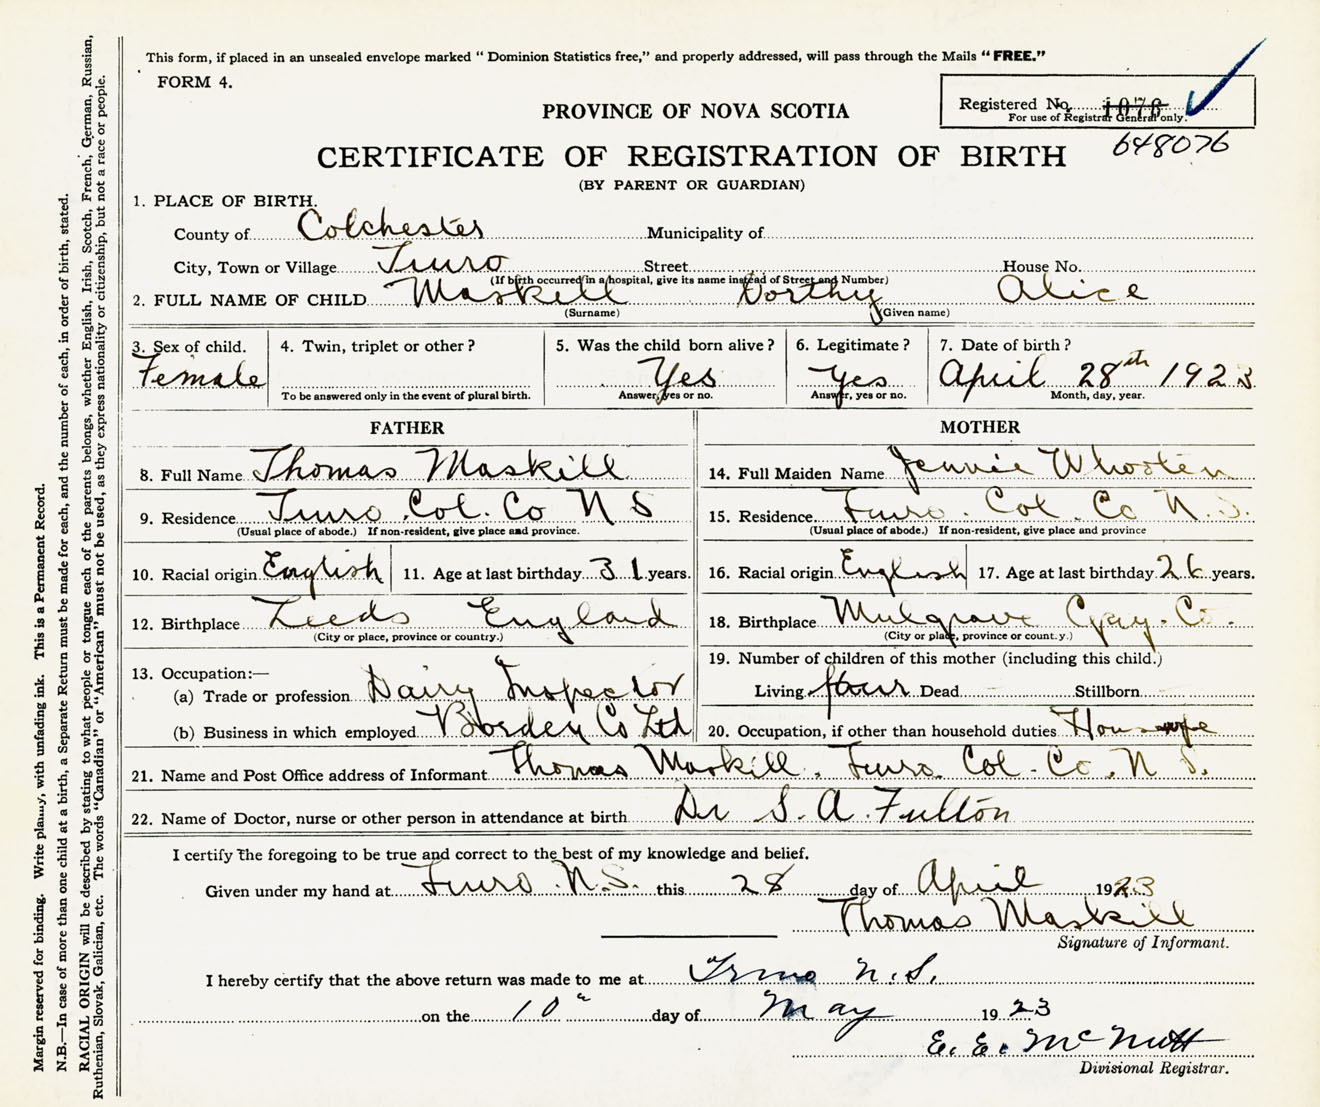 This form, if placed in an unsealed envelope marked " Dominion Statistics free," and properly addressed, will pass through the Mails " FREE."
FORM 4.
Registered No. 1076
For use of Registrar General only.
648076
PROVINCE OF NOVA SCOTIA
CERTIFICATE OF REGISTRATION OF BIRTH
(BY PARENT OR GUARDIAN)
1. PLACE OF BIRTH.
County of Colchester Municipality of
City, Town or Village Truro Street House No.
(If birth occurred in a hospital, give its name instead of Street and Number)
2. FULL NAME OF CHILD Maskill Dorthy Alice
(Surname) (Given name)
3. Sex of child. 4. Twin, triplet or other ? 5. Was the child born alive ? 6. Legitimate ? 7. Date of birth ?
Female Yes Yes April 28th 1923
To be answered only in the event of plural birth. Answer, yes or no. Answer, yes or no. Month, day, year.
FATHER
8. Full Name Thomas Maskill
9. Residence Truro Col. Co N S
(Usual place of abode.) If non-resident, give place and province.
10. Racial origin English 11. Age at last birthday 31 years.
12. Birthplace Leeds England
(City or place, province or country.)
13. Occupation:—
(a) Trade or profession Dairy Inspector
(b) Business in which employed Borden Co Ltd
MOTHER
14. Full Maiden Name Jennie Whooten
15. Residence Truro. Col. Co N.S.
(Usual place of abode.) If non-resident, give place and province
16. Racial origin English 17. Age at last birthday 26 years.
18. Birthplace Mulgrave Guy. Co.
(City or place, province or count.y.)
19. Number of children of this mother (including this child.)
Living four Dead — Stillborn
20. Occupation, if other than household duties Housewife
21. Name and Post Office address of Informant Thomas Maskill. Truro Col. Co. N S.
22. Name of Doctor, nurse or other person in attendance at birth Dr S. A. Fulton
I certify the foregoing to be true and correct to the best of my knowledge and belief.
Given under my hand at Truro. N.S. this 28 day of April 1923
Thomas Maskill
Signature of Informant.
I hereby certify that the above return was made to me at Truro N.S.
on the 10th day of May 1923
E. E. McNutt
Divisional Registrar.
Margin reserved for binding. Write plainly, with unfading ink. This is a Permanent Record.
N.B.—In case of more than one child at a birth, a Separate Return must be made for each, and the number of each, in order of birth, stated.
RACIAL ORIGIN will be described by stating to what people or tongue each of the parents belongs, whether English, Irish, Scotch, French, German, Russian,
Ruthenian, Slovak, Galician, etc. The words "Canadian" or "American" must not be used, as they express nationality or citizenship, but not a race or people.